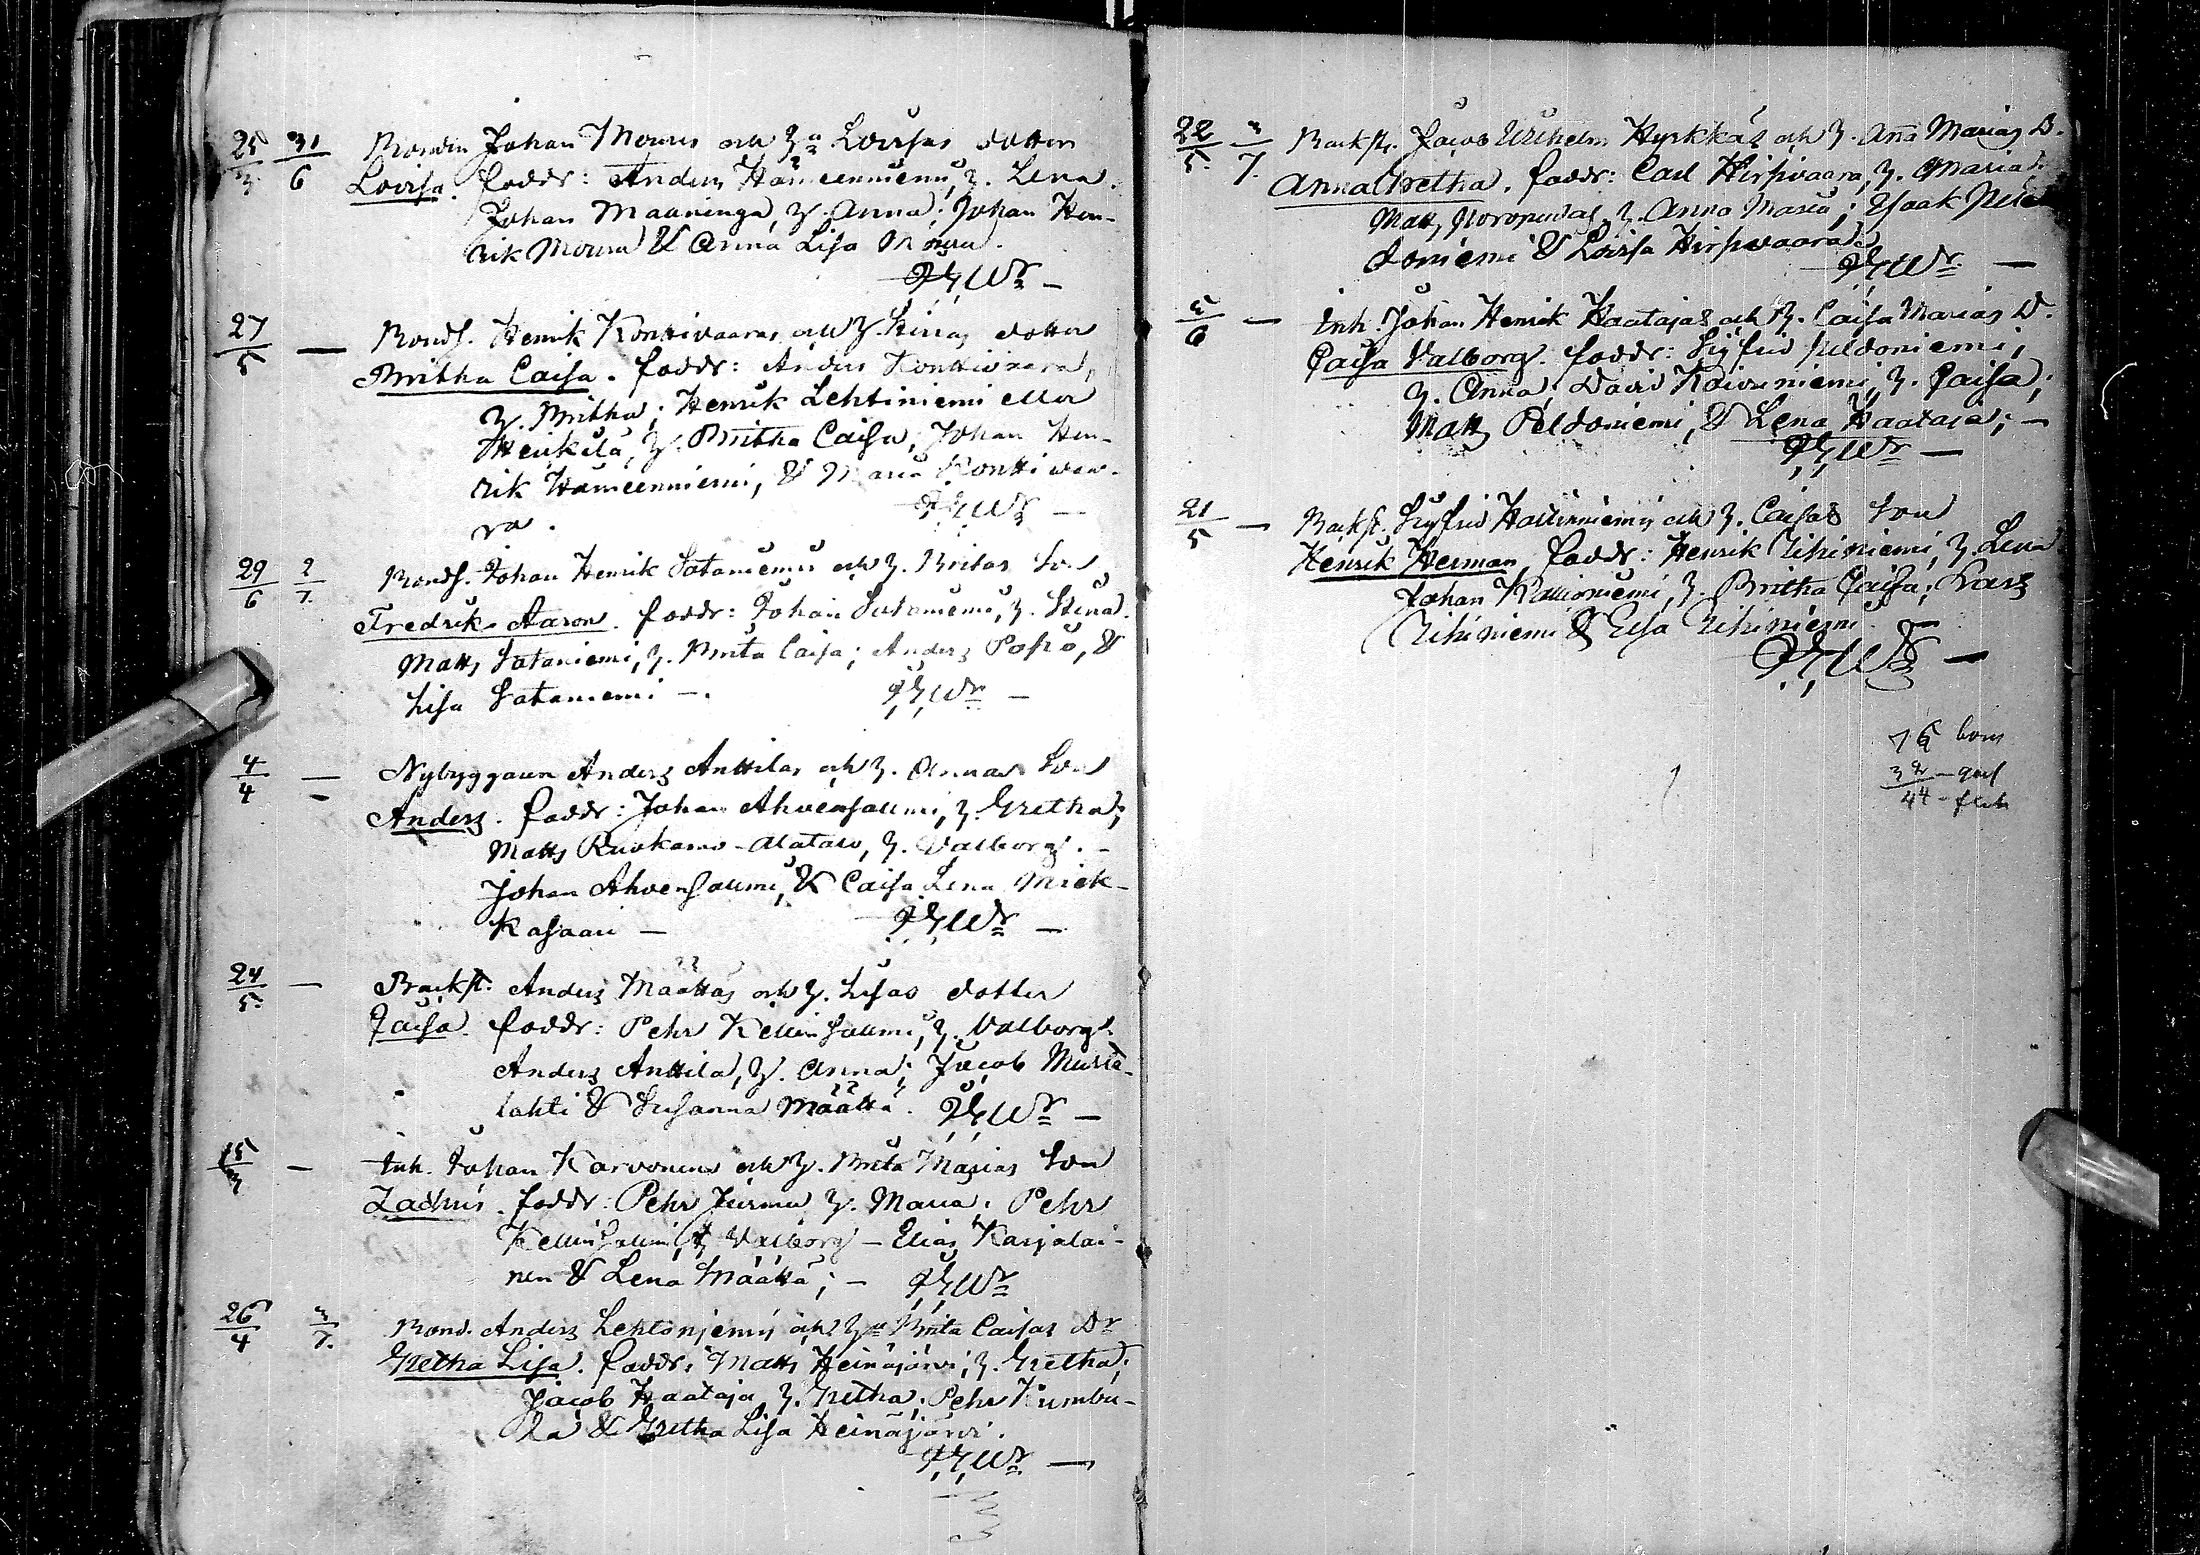 25/3 31/6 Bonden Johan Mourus och H:u Lovisas dotter
Lovisa. faddr: Anders Hämeenniemi, H. Lena.
Johan Maaninga, H. Anna; Johan Hen-
rik Mouru & Anna Lisa Mouru.
27/5 — Bonds. Henrik Konttivaaras och H. Stinas dotter
Britha Caisa. faddr: Anders Konttivaara,
H. Britha; Henrik Lehtiniemi eller
Heikilä, H. Britha Caisa; Johan Hen-
rik Hämeenniemi, & Maria Konttivaa-
ra.
29/6 2/7. Bonds. Johan Henrik Sataniemis och H. Britas Son
Fredrik Aaron. faddr: Johan Sataniemi, H. Stina.
Matts Sataniemi, H. Brita Caisa; Anders Posio, &
Lisa Sataniemi —.
4/4 — Nybyggaren Anders Anttilas och H. Annas Son
Anders. faddr: Johan Ahvensalmi, H. Gretha;
Matts Ruokamo-Alatalo, H. Valborg. –
Johan Ahvensalmi, & Caisa Lena Mick-
kasaari —
24/5. — Backst. Anders Määttäs och H. Lisas dotter
Caisa. faddr: Pehr Kellinsalmi, H. Valborg.
Anders Anttila, H. Anna; Jacob Musta-
lahti & Susanna Määttä.
15/3 — Inh. Johan Karvonens och H. Brita Marias Son
Zachris. faddr: Pehr Jurmu H. Maria; Pehr
Kellinsalmi, H. Valborg — Elias Karjalai-
nen & Lena Määttä; —
26/4 3/7. Bond. Anders Lehtoniemis och H:u Brita Caisas Dr
Gretha Lisa. faddr: Matts Heinäjärvi, H. Gretha;
Jacob Haataja H. Gretha; Pehr Kumbu-
la & Gretha Lisa Heinäjärvi.
22/5. 3/7. Backst. Jacob Wilhelm Hyrkkäs och H. Anna Marias D.
Anna Gretha. faddr: Carl Hirsivaara, H. Maria
Matts Noronen, H. Anna Maria; Isaak Pel-
doniemi & Lovisa Hirsivaara
5/6 — Inh. Johan Henrik Haatajas och H. Caisa Marias D.
Caisa Valborg. faddr: Sigfrid Peldoniemi,
H. Anna; David Koivuniemi, H. Caisa;
Matts Peldoniemi, & Lena Haataja; —
21/5 — Backst. Sigfrid Hallinniemis och H. Caisas Son
Henrik Herman. faddr: Henrik Riihiniemi, H. Lena
Johan Kallioniemi, H. Britha Caisa; Lars
Riihiniemi & Elsa Riihiniemi.